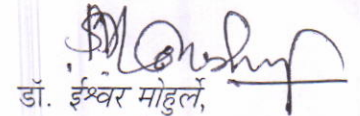 डॉ. ईश्वर मोहुर्ले,